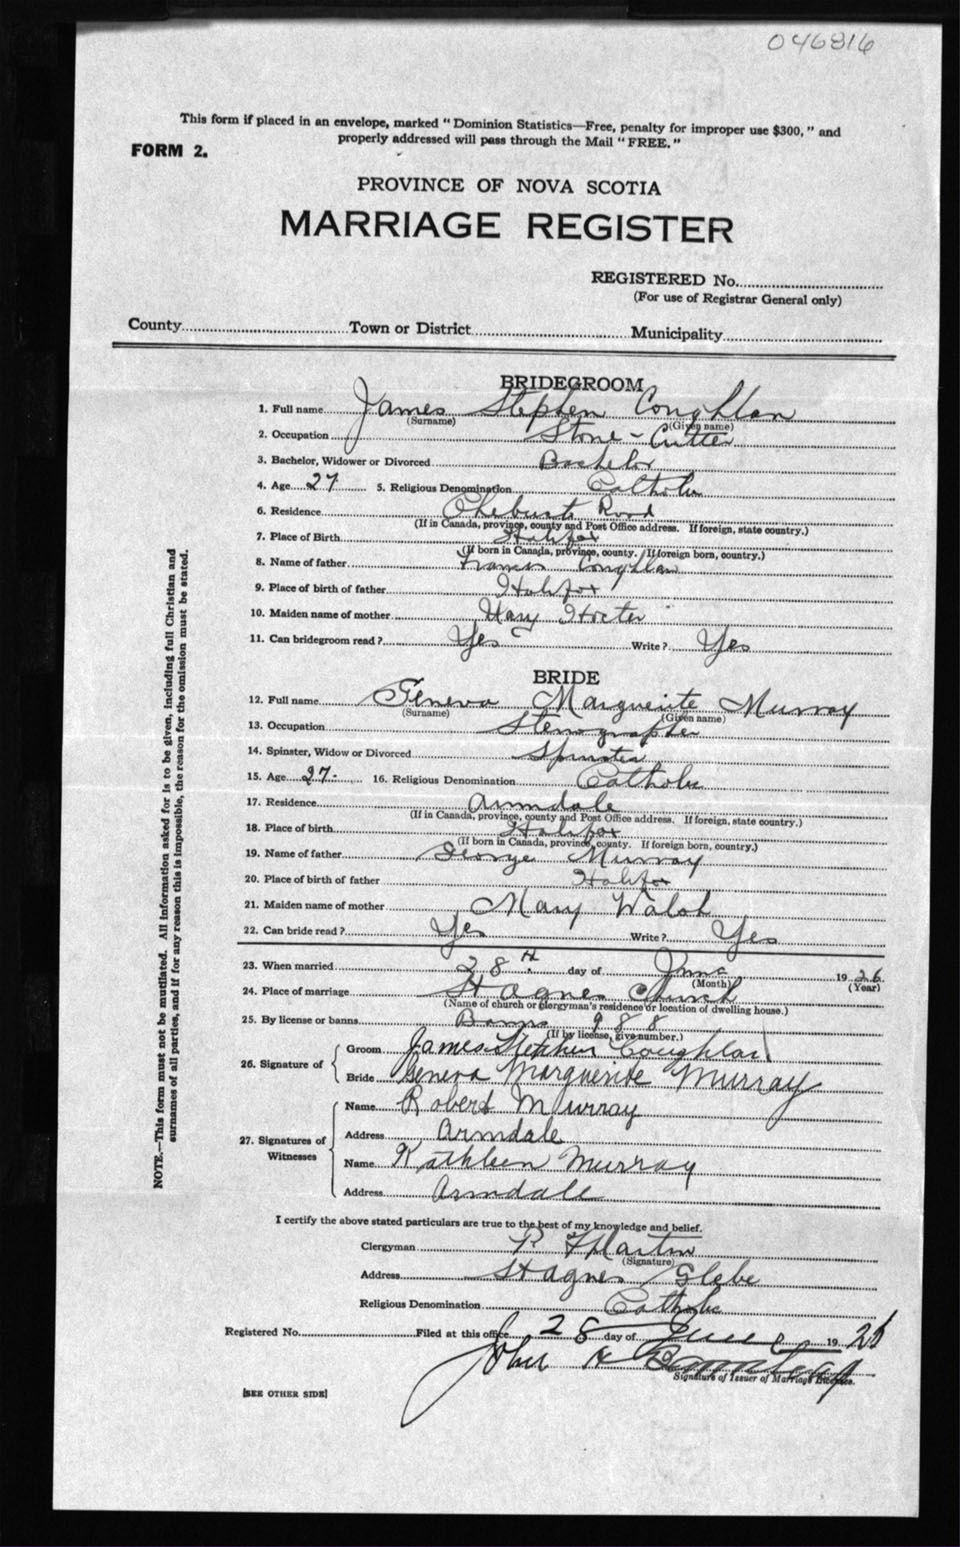 046816
This form if placed in an envelope, marked "Dominion Statistics—Free, penalty for improper use $300," and
properly addressed will pass through the Mail "FREE."
FORM 2.
PROVINCE OF NOVA SCOTIA
MARRIAGE REGISTER
REGISTERED No.
(For use of Registrar General only)
County Town or District Municipality
BRIDEGROOM
1. Full name James Stephen Coughlan
(Surname) (Given name)
2. Occupation Stone-Cutter
3. Bachelor, Widower or Divorced Bachelor
4. Age 27 5. Religious Denomination Catholic
6. Residence Chebucto Road
(If in Canada, province, county and Post Office address. If foreign, state country.)
7. Place of Birth Halifax
(If born in Canada, province, county. If foreign born, country.)
8. Name of father Francis Coughlan
9. Place of birth of father Halifax
10. Maiden name of mother Mary Hocter
11. Can bridegroom read? Yes Write? Yes
BRIDE
12. Full name Geneva Marguerite Murray
(Surname) (Given name)
13. Occupation Stenographer
14. Spinster, Widow or Divorced Spinster
15. Age 27. 16. Religious Denomination Catholic
17. Residence Armdale
(If in Canada, province, county and Post Office address. If foreign, state country.)
18. Place of birth Halifax
(If born in Canada, province, county. If foreign born, country.)
19. Name of father George Murray
20. Place of birth of father Halifax
21. Maiden name of mother Mary Walsh
22. Can bride read? Yes Write? Yes
23. When married 28th day of June 1926
(Month) (Year)
24. Place of marriage St Agnes Church
(Name of church or clergyman's residence or location of dwelling house.)
25. By license or banns Banns 988
(If by license, give number.)
26. Signature of
Groom James Stephen Coughlan
Bride Geneva Marguerite Murray
27. Signatures of Witnesses
Name Robert Murray
Address Armdale
Name Kathleen Murray
Address Armdale
I certify the above stated particulars are true to the best of my knowledge and belief.
Clergyman P. Martin
(Signature)
Address St Agnes Glebe
Religious Denomination Catholic
Registered No. Filed at this office 28 day of June 19 26
John H
Signature of Issuer of Marriage Licenses.
[SEE OTHER SIDE]
NOTE.—This form must not be mutilated. All information asked for is to be given, including full Christian and
surnames of all parties, and if for any reason this is impossible, the reason for the omission must be stated.